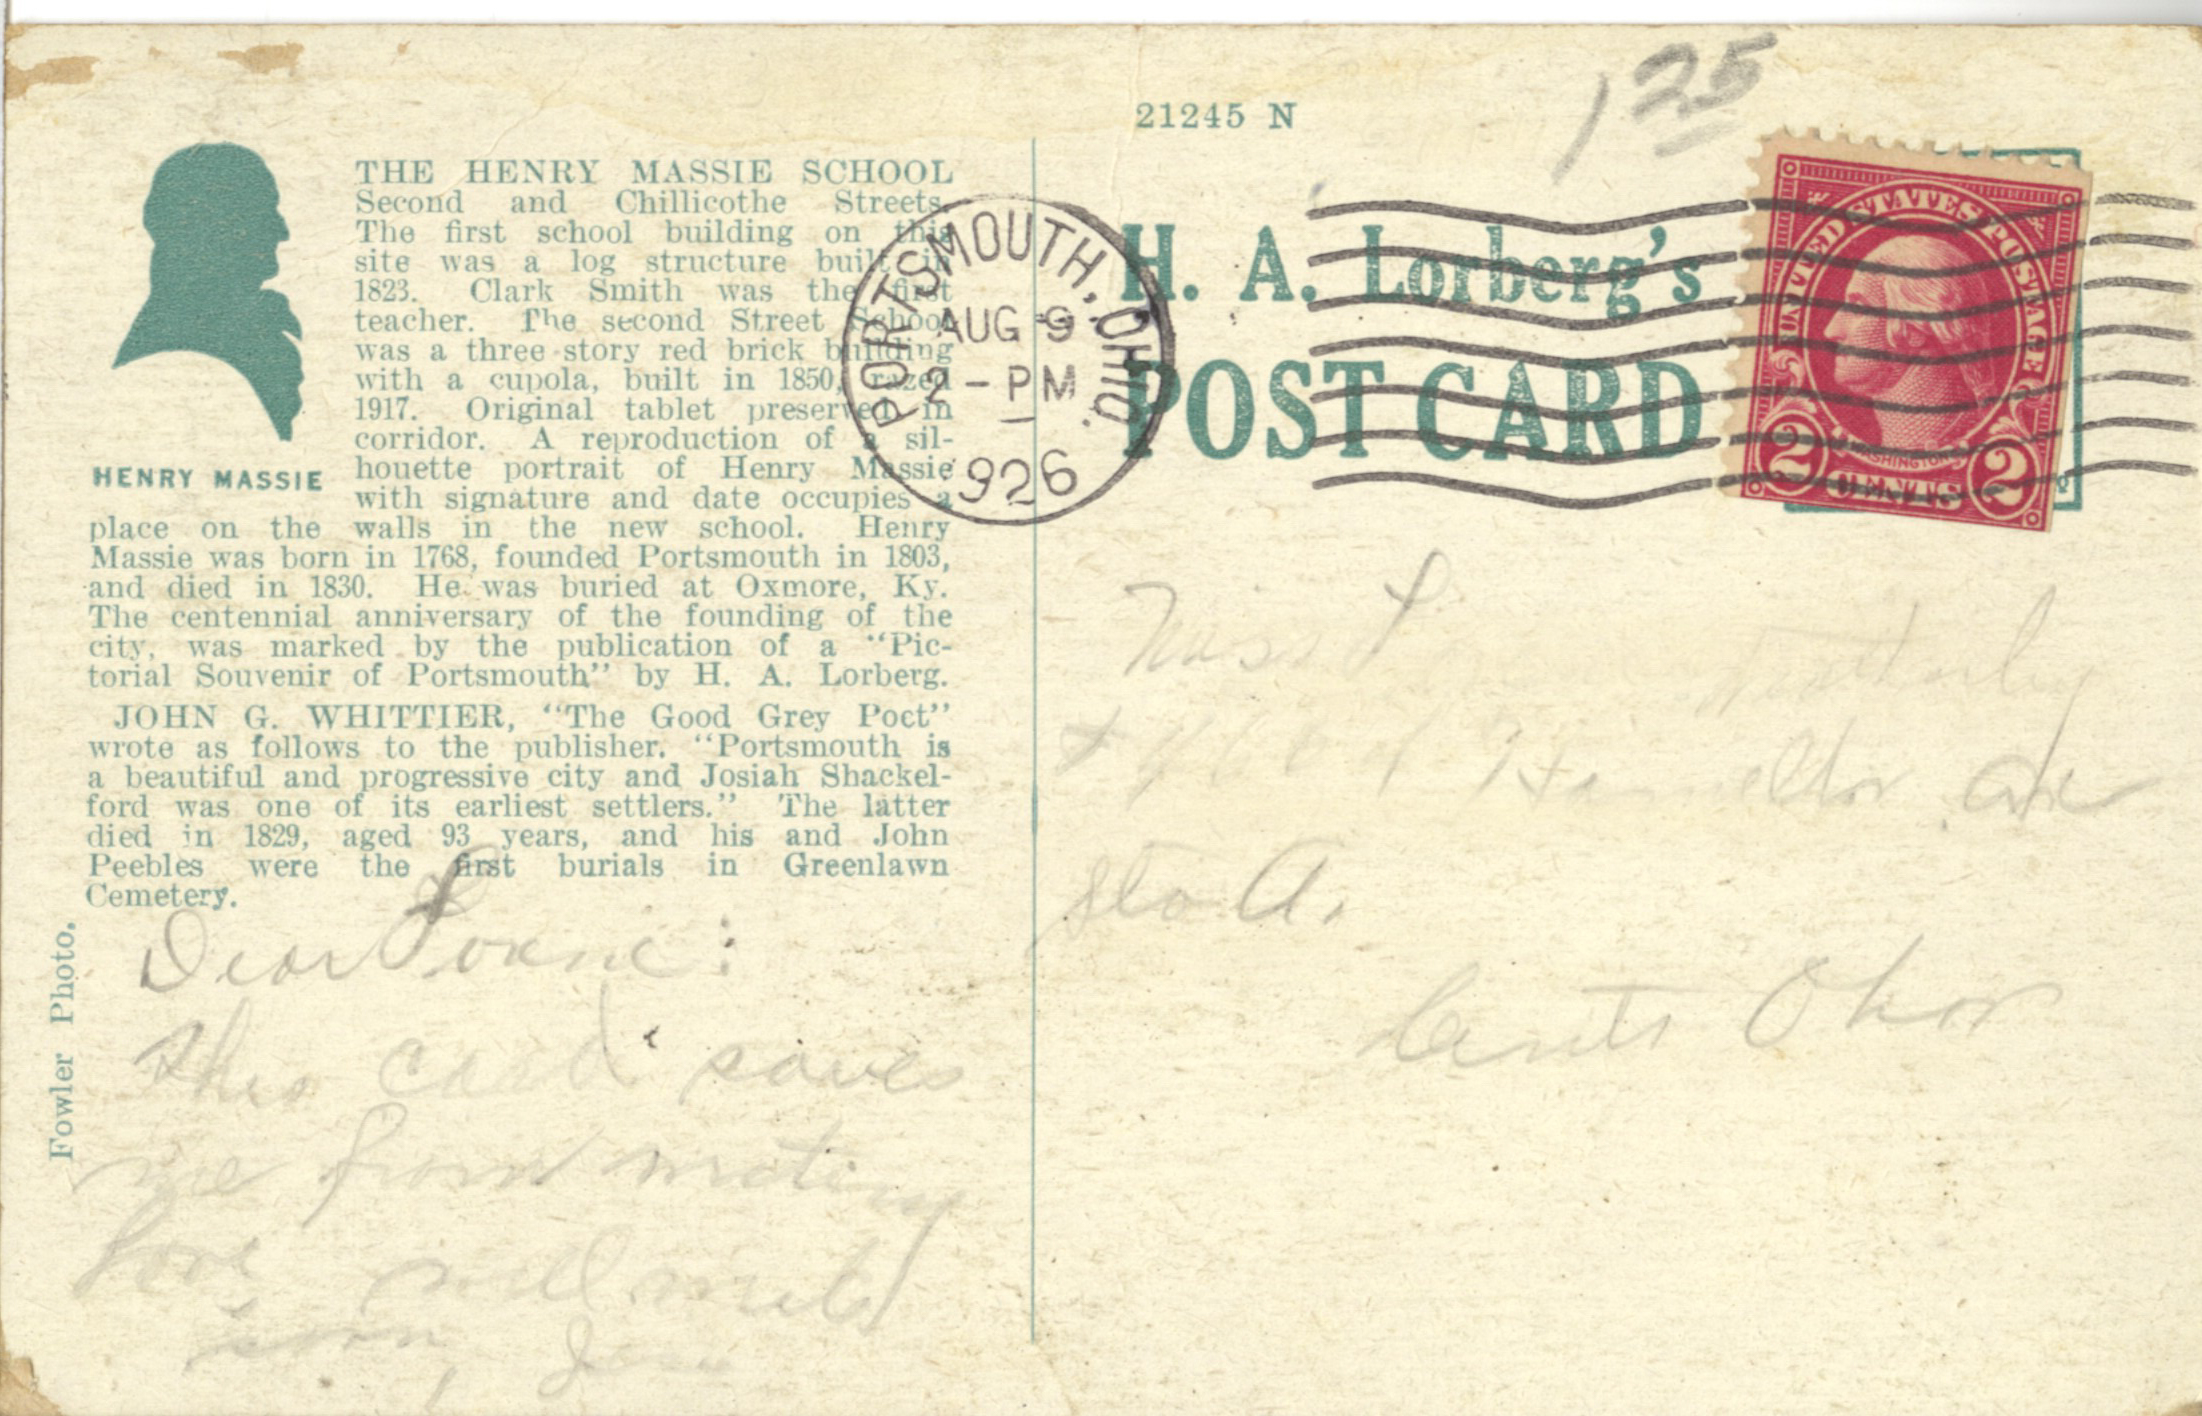 THE HENRY MASSIE SCHOOL
Second and Chillicothe Streets.
The first school building on this
site was a log structure built in
1823. Clark Smith was the first
teacher. The second Street School
was a three story red brick building
with a cupola, built in 1850, razed
1917. Original tablet preserved in
corridor. A reproduction of a sil-
houette portrait of Henry Massie
with signature and date occupies a
place on the walls in the new school. Henry
Massie was born in 1768, founded Portsmouth in 1803,
and died in 1830. He was buried at Oxmore, Ky.
The centennial anniversary of the founding of the
city, was marked by the publication of a “Pic-
torial Souvenir of Portsmouth” by H. A. Lorberg.
JOHN G. WHITTIER, “The Good Grey Poet”
wrote as follows to the publisher. “Portsmouth is
a beautiful and progressive city and Josiah Shackel-
ford was one of its earliest settlers.” The latter
died in 1829, aged 93 years, and his and John
Peebles were the first burials in Greenlawn
Cemetery.
HENRY MASSIE
Fowler Photo.
Dear
this card saves
me from
will
soon
21245 N
125
H. A. Lorberg's
POST CARD
PORTSMOUTH, OHIO.
AUG 9
2 - PM
1926
UNITED STATES POSTAGE
WASHINGTON
2 CENTS 2
Miss
Hamilton Ave
Sta A.
Ohio